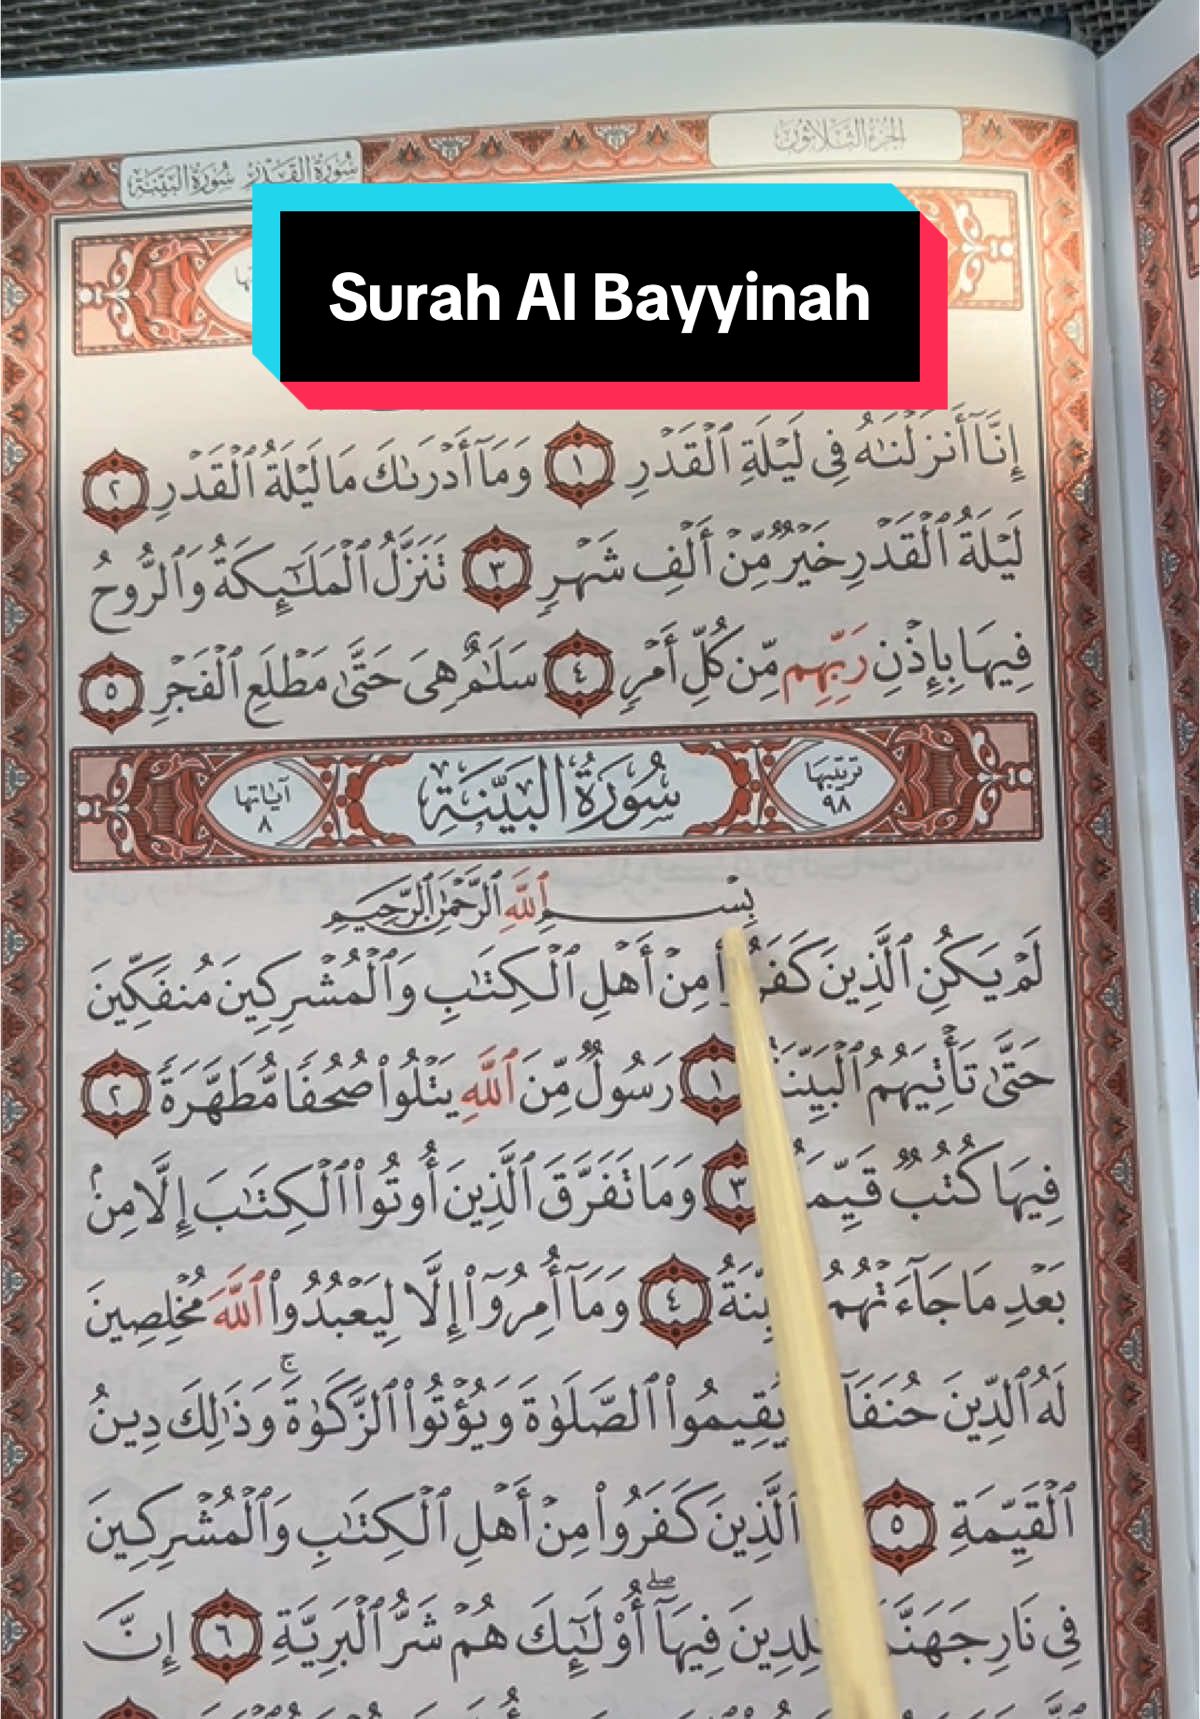 الجزء الثلاثون
سورة القدر سورة البينة
Surah Al Bayyinah
إِنَّآ أَنزَلْنَٰهُ فِى لَيْلَةِ ٱلْقَدْرِ ١ وَمَآ أَدْرَىٰكَ مَا لَيْلَةُ ٱلْقَدْرِ ٢
لَيْلَةُ ٱلْقَدْرِ خَيْرٌ مِّنْ أَلْفِ شَهْرٍ ٣ تَنَزَّلُ ٱلْمَلَٰٓئِكَةُ وَٱلرُّوحُ
فِيهَا بِإِذْنِ رَبِّهِم مِّن كُلِّ أَمْرٍ ٤ سَلَٰمٌ هِىَ حَتَّىٰ مَطْلَعِ ٱلْفَجْرِ ٥
ترتيبها ٩٨ سُورَةُ البَيِّنَةِ آياتها ٨
بِسْمِ ٱللَّهِ ٱلرَّحْمَٰنِ ٱلرَّحِيمِ
لَمْ يَكُنِ ٱلَّذِينَ كَفَرُوا۟ مِنْ أَهْلِ ٱلْكِتَٰبِ وَٱلْمُشْرِكِينَ مُنفَكِّينَ
حَتَّىٰ تَأْتِيَهُمُ ٱلْبَيِّنَةُ ١ رَسُولٌ مِّنَ ٱللَّهِ يَتْلُوا۟ صُحُفًا مُّطَهَّرَةً ٢
فِيهَا كُتُبٌ قَيِّمَةٌ ٣ وَمَا تَفَرَّقَ ٱلَّذِينَ أُوتُوا۟ ٱلْكِتَٰبَ إِلَّا مِنۢ
بَعْدِ مَا جَآءَتْهُمُ ٤ وَمَآ أُمِرُوٓا۟ إِلَّا لِيَعْبُدُوا۟ ٱللَّهَ مُخْلِصِينَ
لَهُ ٱلدِّينَ حُنَفَآءَ يُقِيمُوا۟ ٱلصَّلَوٰةَ وَيُؤْتُوا۟ ٱلزَّكَوٰةَ ۚ وَذَٰلِكَ دِينُ
ٱلْقَيِّمَةِ ٥ ٱلَّذِينَ كَفَرُوا۟ مِنْ أَهْلِ ٱلْكِتَٰبِ وَٱلْمُشْرِكِينَ
فِى نَارِ جَهَنَّمَ خَٰلِدِينَ فِيهَآ ۖ أُو۟لَٰٓئِكَ هُمْ شَرُّ ٱلْبَرِيَّةِ ٦ إِنَّ